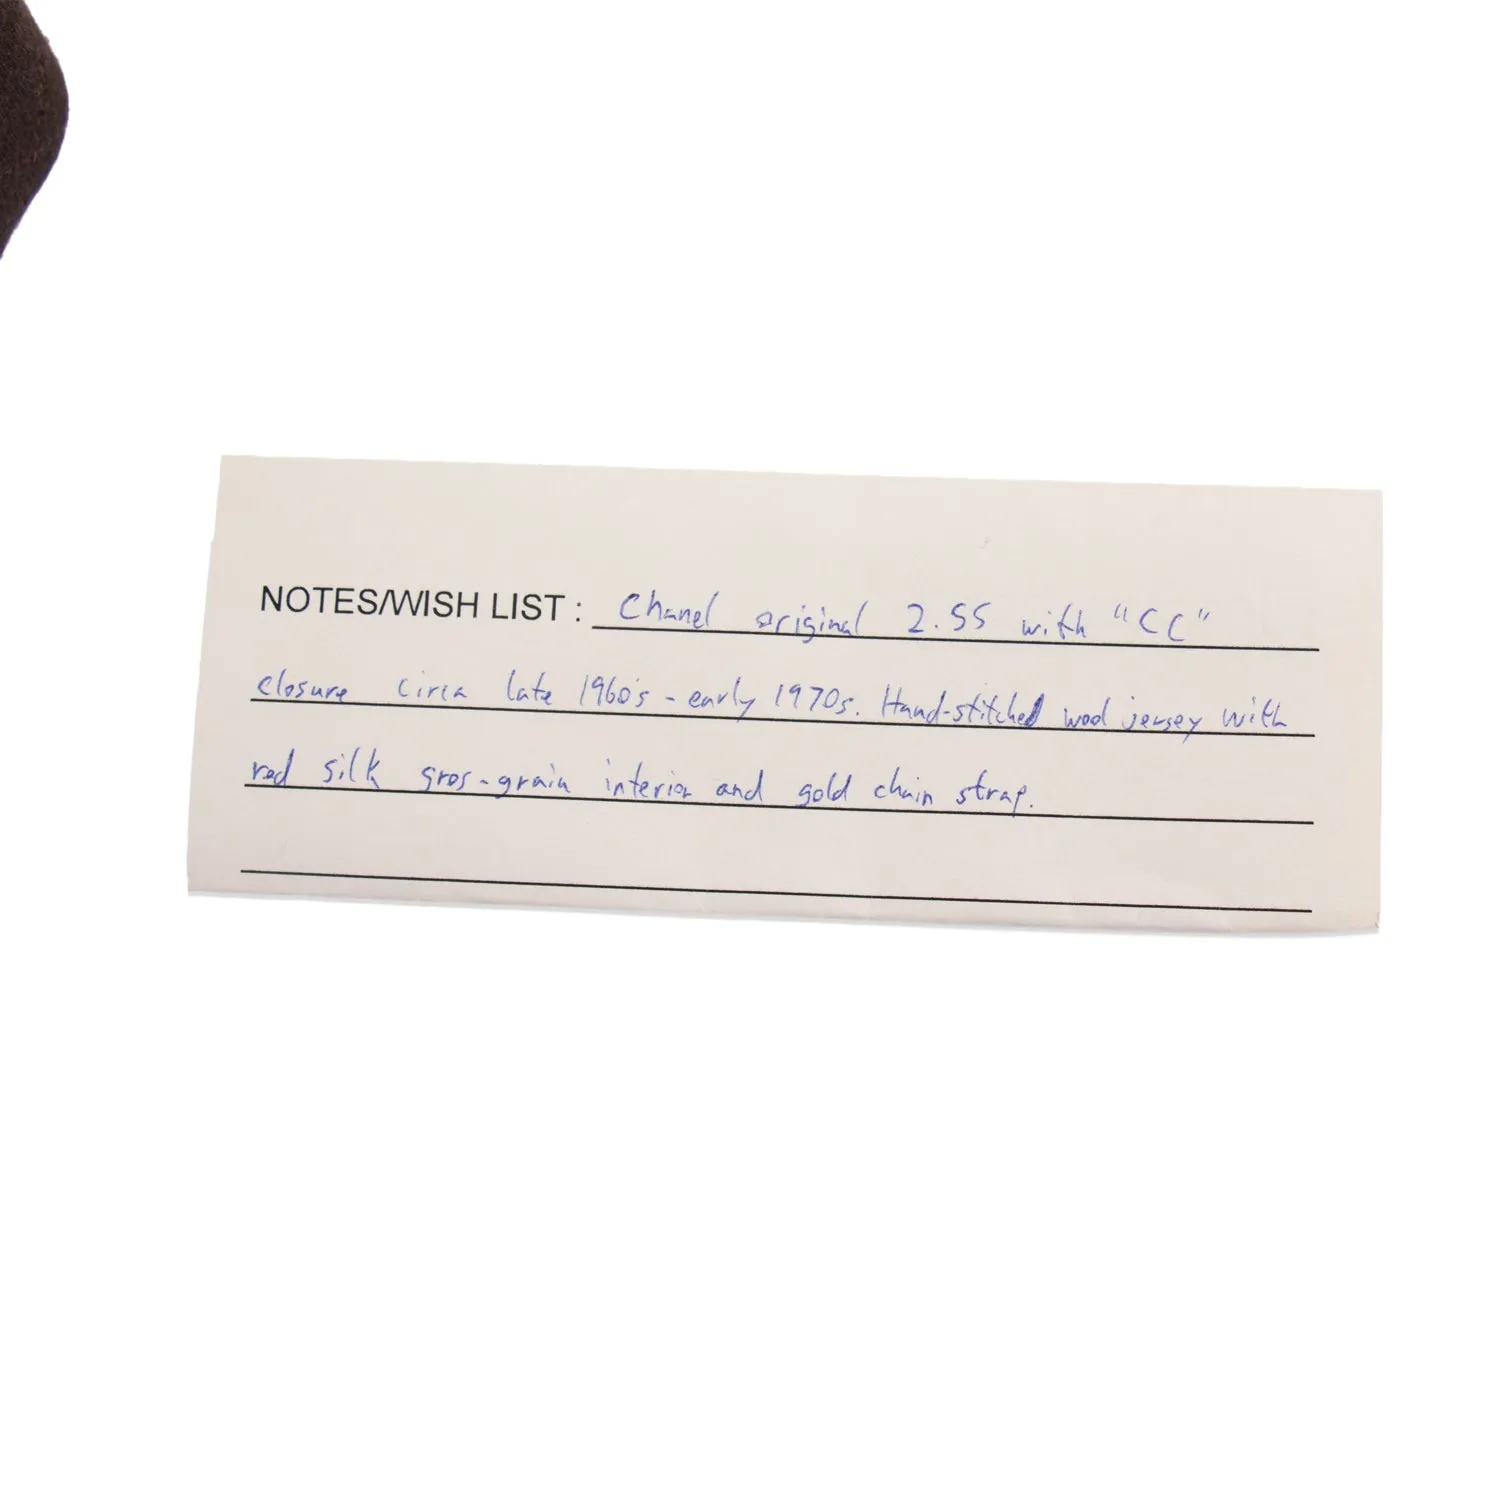 NOTES/WISH LIST : Chanel original 2.55 with "CC"
closure circa late 1960's - early 1970s. Hand-stitched wool jersey with
red silk gros-grain interior and gold chain strap.